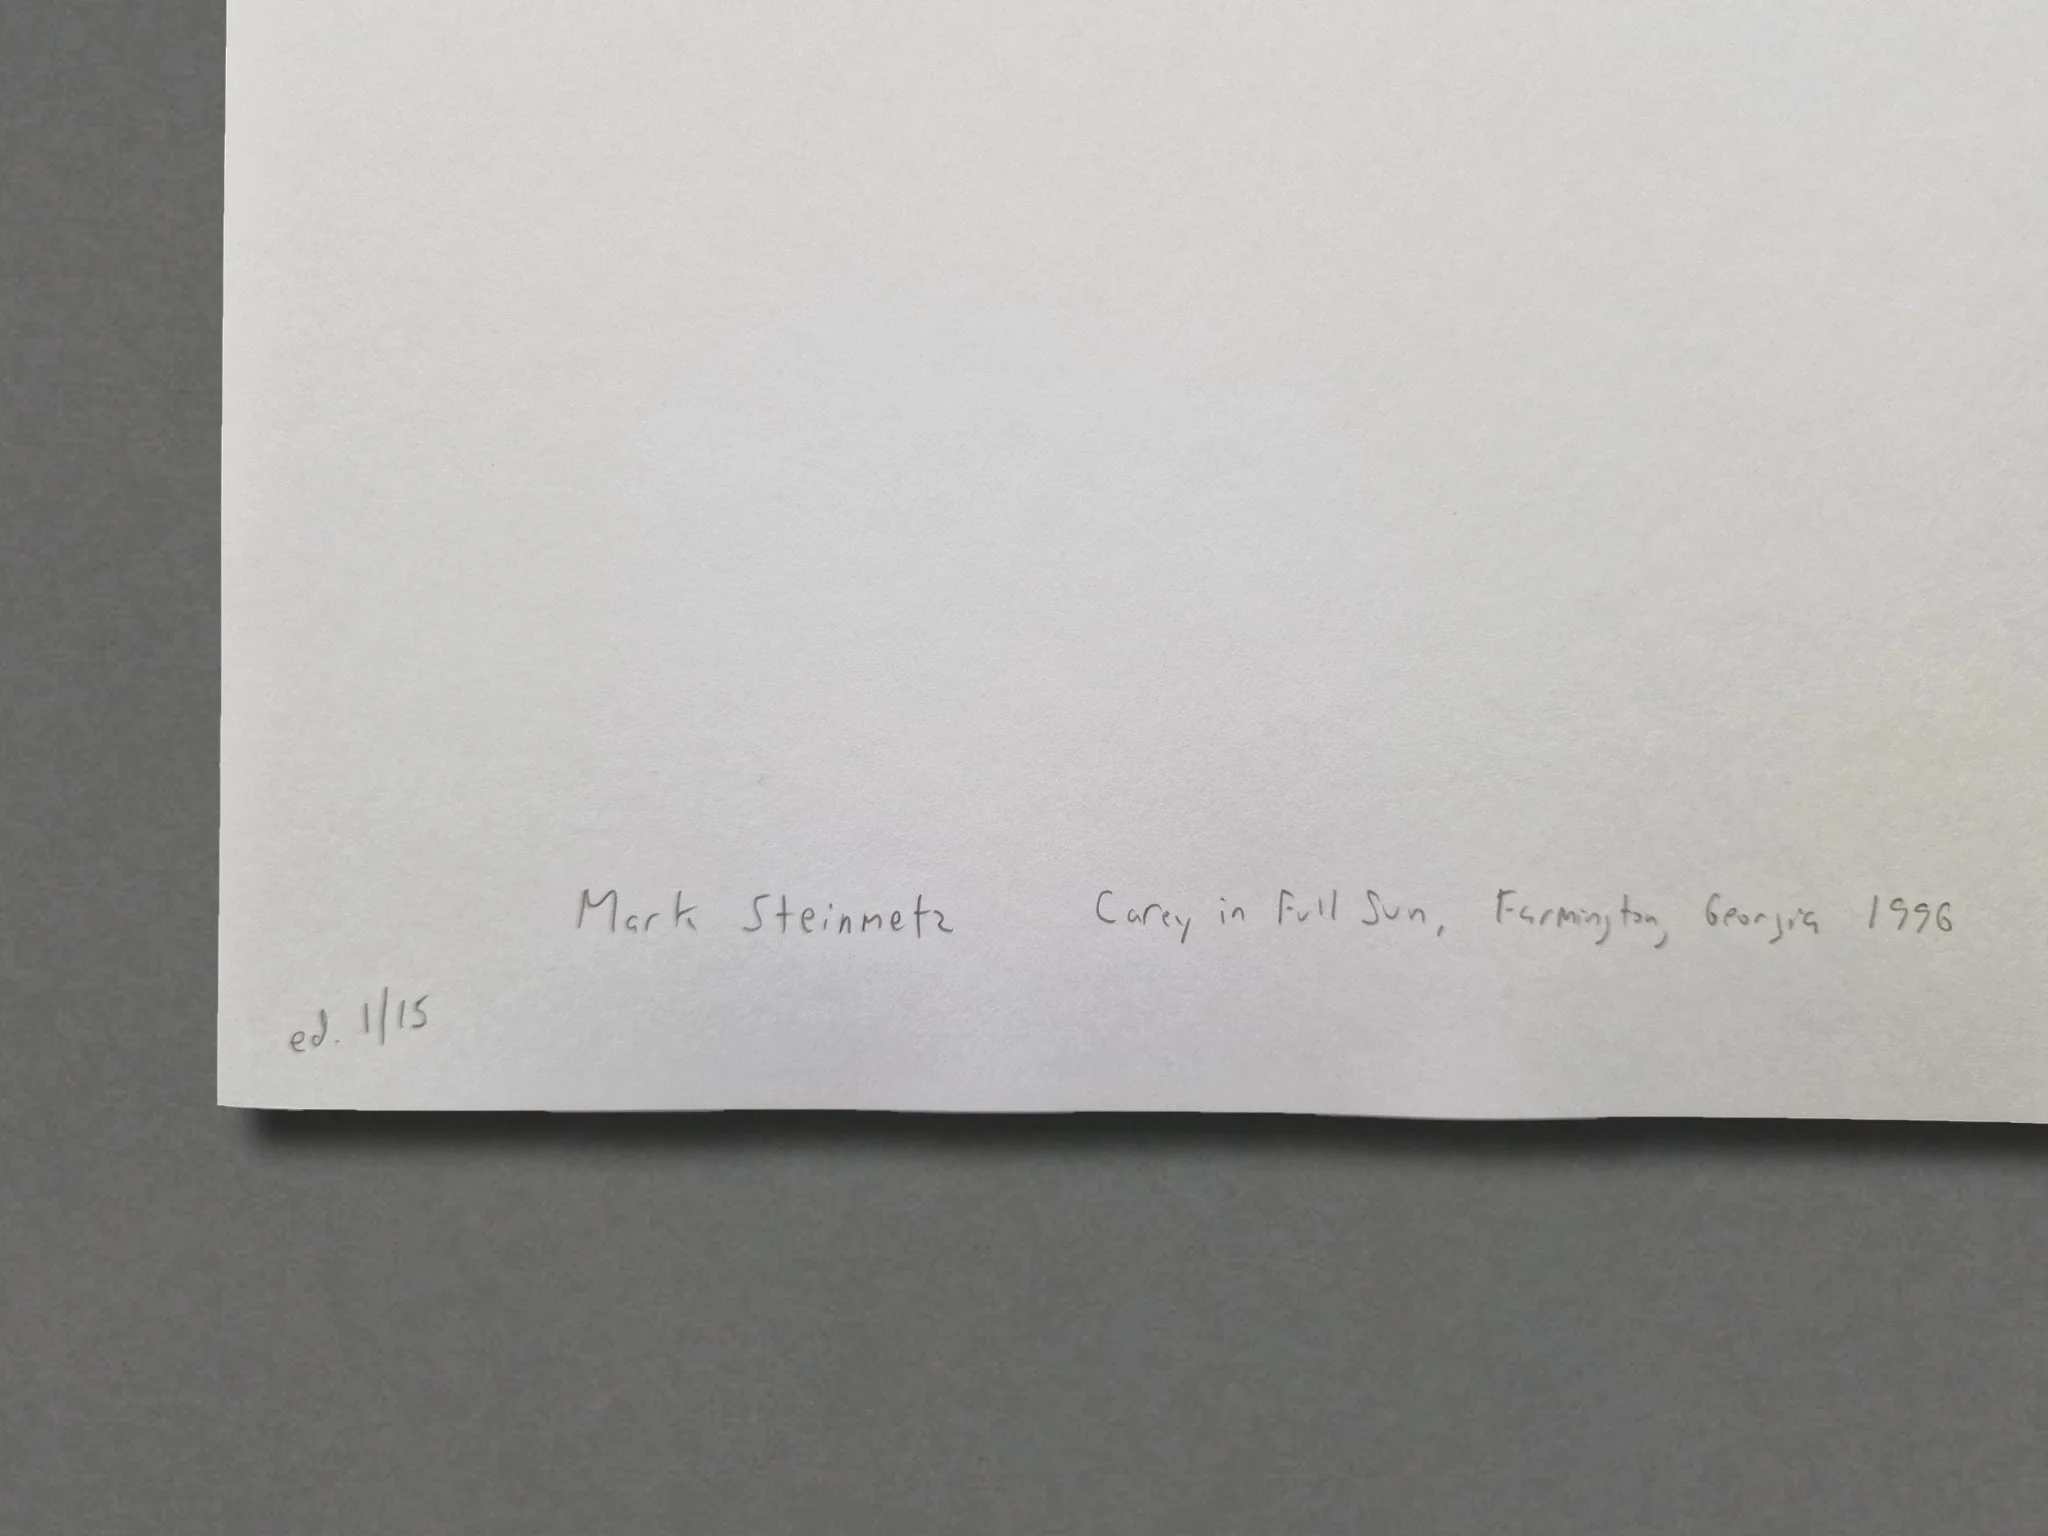 Mark Steinmetz Carey in Full Sun, Farmington, Georgia 1996
ed. 1/15